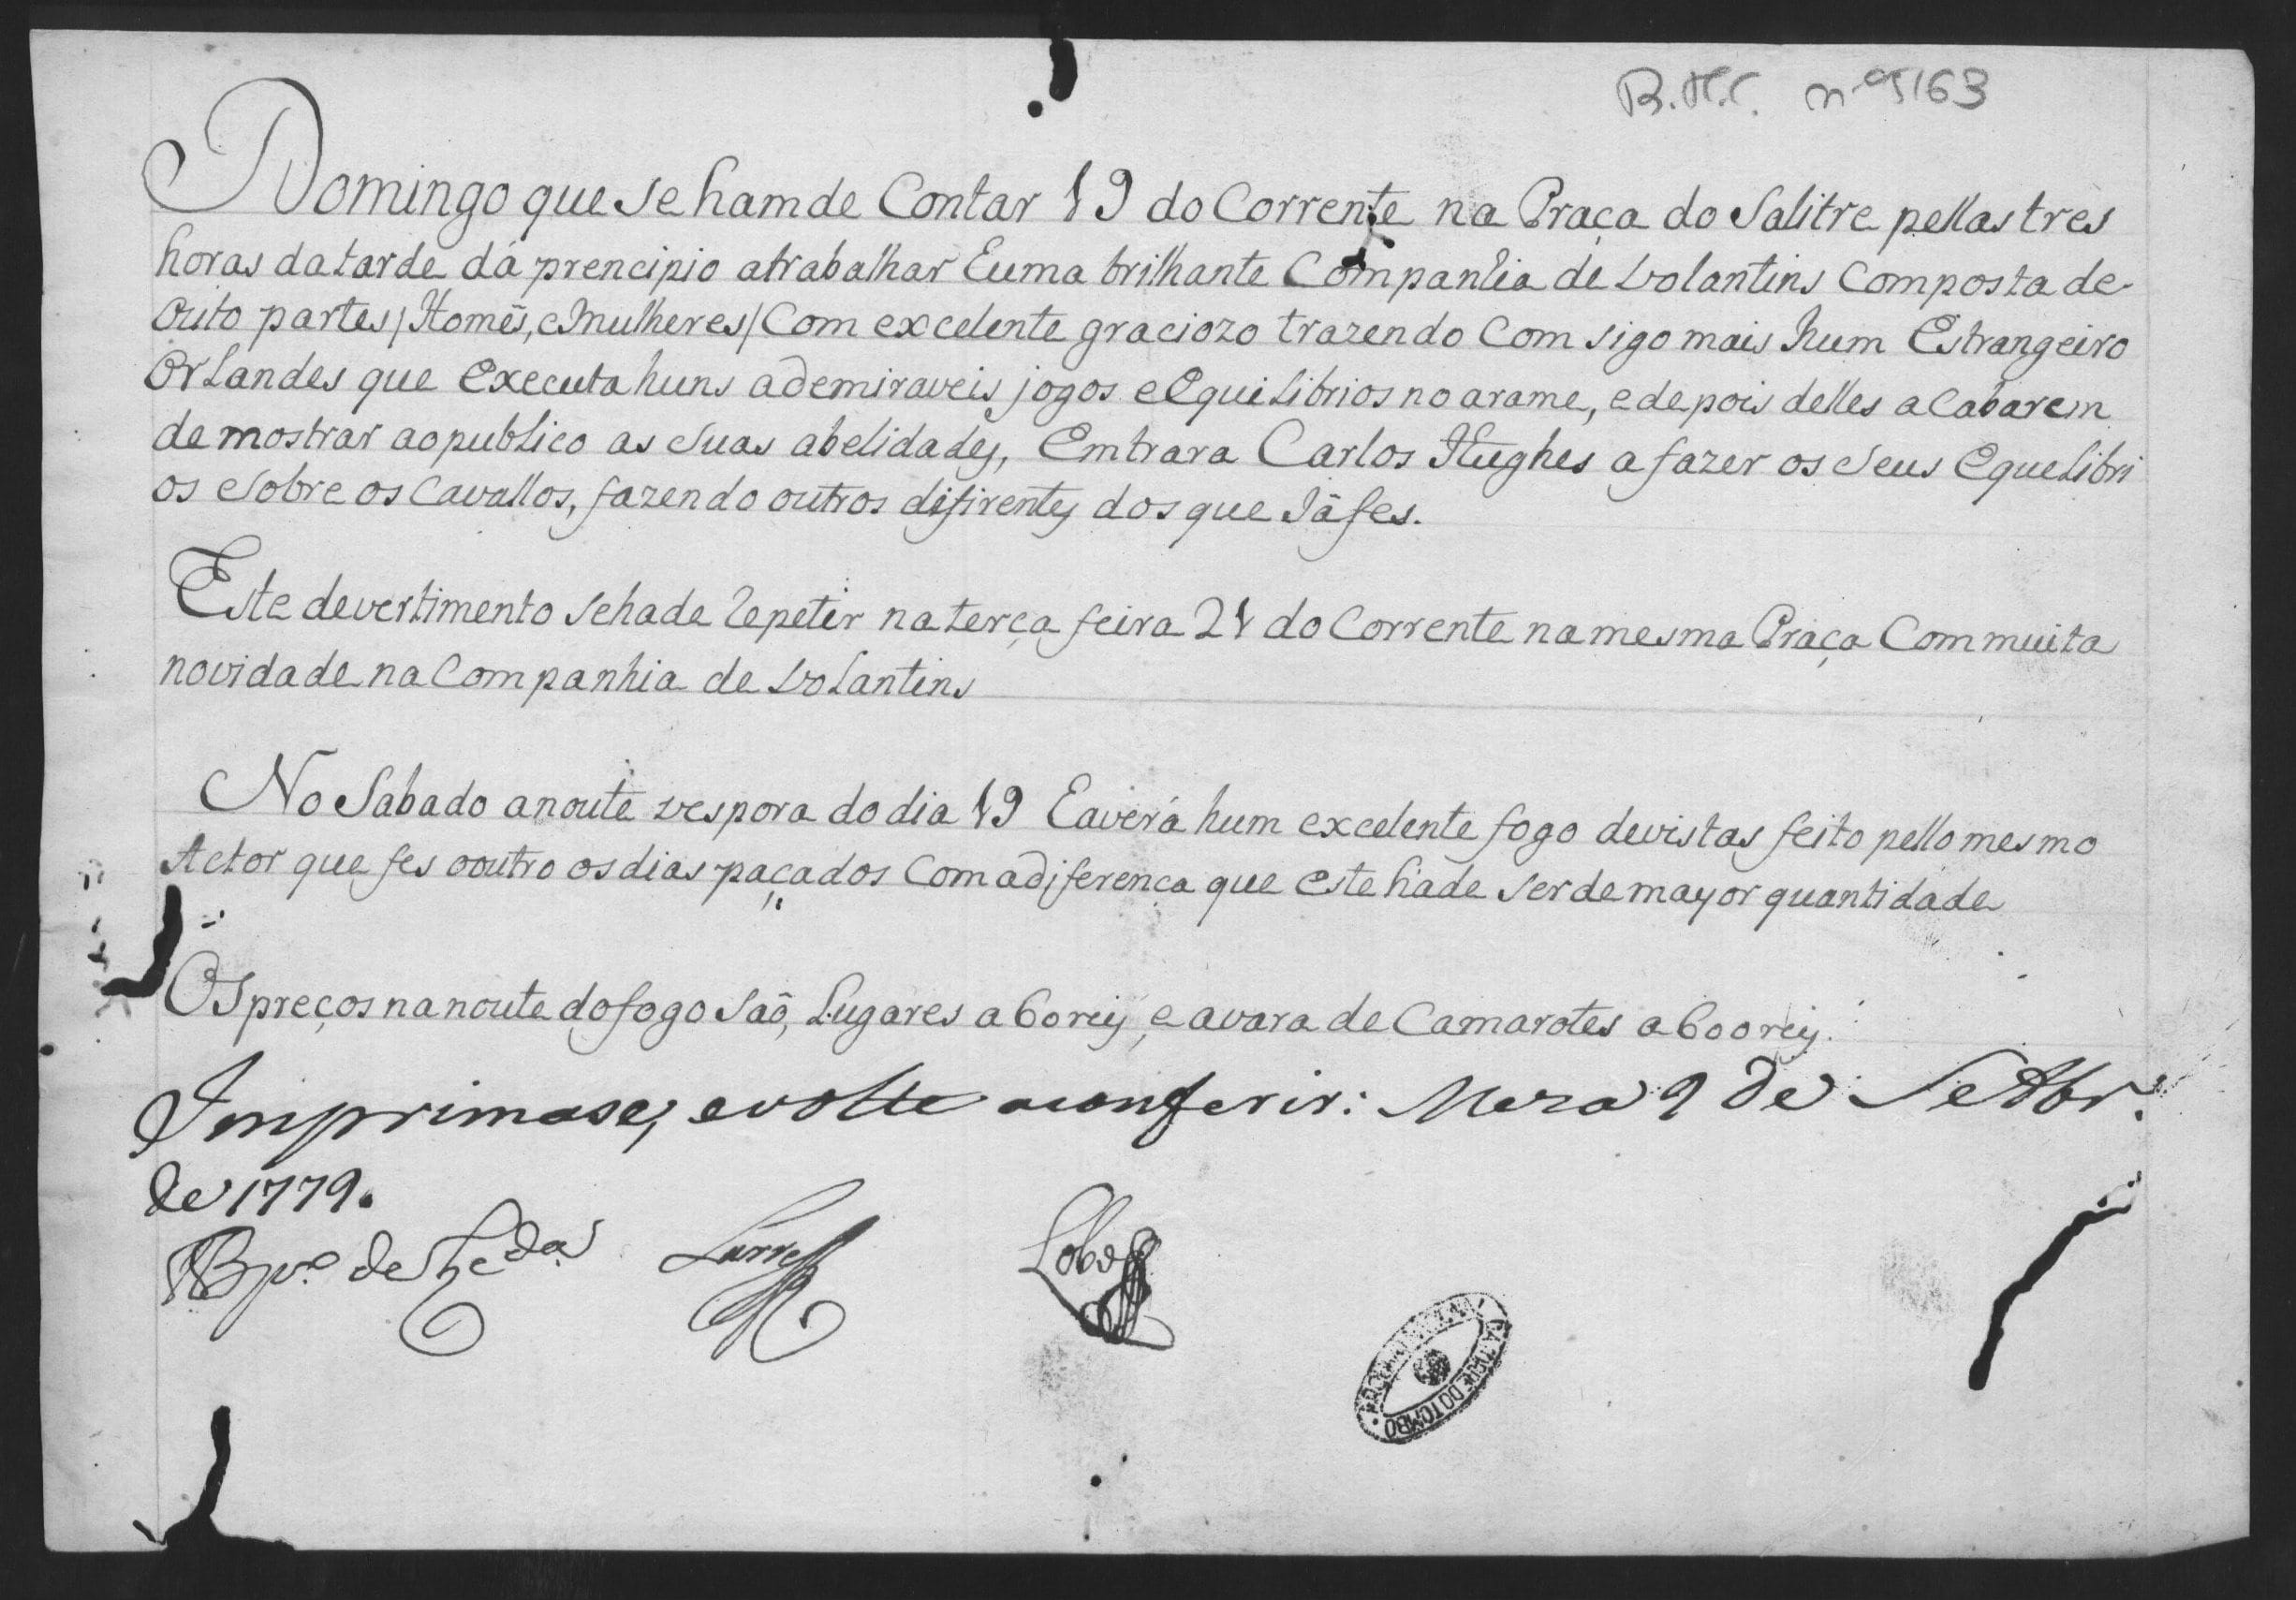 B.N.C. nº 5163
Domingo que se hamde Contar 19 do Corrente na Praça do Salitre pellas tres
horas da tarde dá prencipio atrabalhar huma brilhante Companhia de volantins Composta de
outo partes / Homẽs, e Mulheres / Com excelente graciozo trazendo Com sigo mais hum Estrangeiro
Orlandes que executa huns ademiraveis jogos e Equilibrios no arame, e depois delles aCabarem
de mostrar ao publico as suas abelidades, Emtrara Carlos Hughes a fazer os seus Equelibri
os sobre os Cavallos, fazendo outros difirentes dos que Já fes.
Este devertimento sehade repetir na terça feira 21 do Corrente na mesma Praça Com muita
novidade na Companhia de volantins
No Sabado a noute vespora do dia 19 haverá hum excelente fogo devistas feito pello mesmo
Actor que fes o outro os dias paçados Com a diferença que este hade ser de mayor quantidade
Os preços na noute do fogo saõ, Lugares a 60 reis, e a vara de Camarotes a 600 reis.
Imprimase, e volte a conferir: Meza 9 de Setbr.
de 1779.
Lobo
DA TORRE DO TOMBO